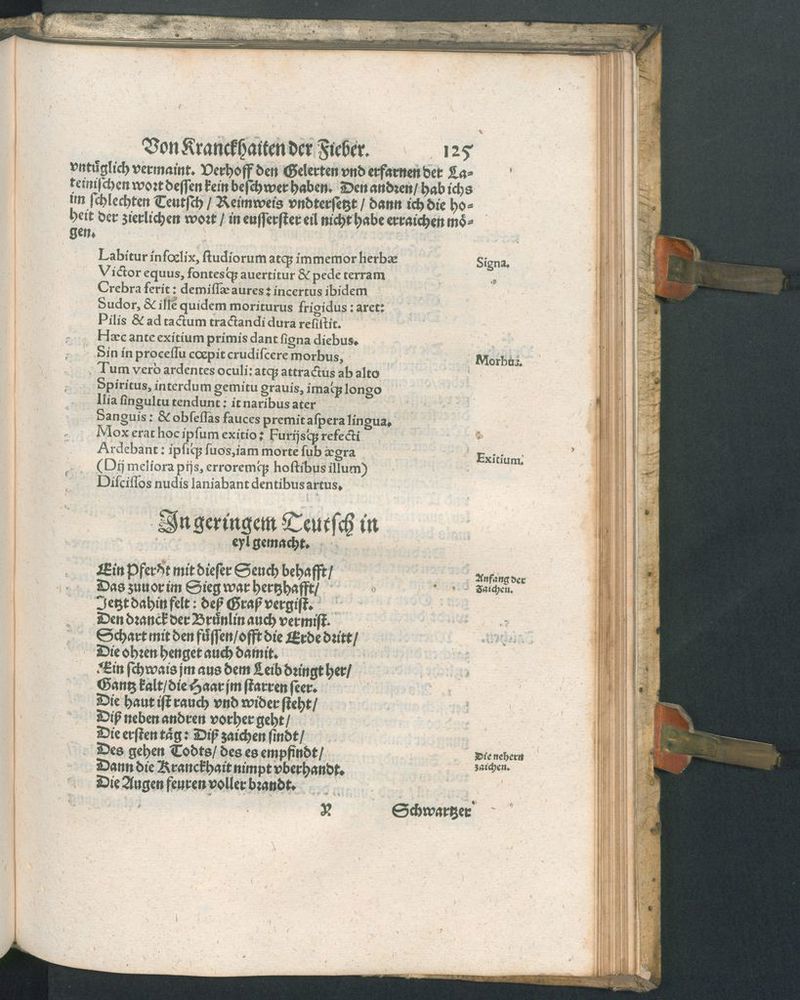 Von Kranckhaiten der Fieber. 125
vntüglich vermaint. Verhoff den Gelerten vnd erfarnen der La⸗
teinischen wort dessen kein beschwer haben. Den andren / hab ichs
im schlechten Teutsch / Reimweis vndtersetzt / dann ich die ho⸗
heit der zierlichen wort / in eusserster eil nicht habe erraichen mö⸗
gen.
Labitur infœlix, studiorum atq; immemor herbæ
Signa.
Victor equus, fontesq́; auertitur & pede terram
Crebra ferit: demissæ aures: incertus ibidem
Sudor, & ille quidem moriturus frigidus: aret:
Pilis & ad tactum tractandi dura resistit.
Hæc ante exitium primis dant signa diebus.
Sin in processu cœpit crudiscere morbus,
Morbus.
Tum verò ardentes oculi: atq; attractus ab alto
Spiritus, interdum gemitu grauis, imaq́; longo
Ilia singultu tendunt: it naribus ater
Sanguis: & obsessas fauces premit aspera lingua.
Mox erat hoc ipsum exitio: Furijsq́; refecti
Ardebant: ipsiq́; suos, iam morte sub ægra
Exitium.
(Dij meliora pijs, erroremq́; hostibus illum)
Discissos nudis laniabant dentibus artus.
In geringem Teutsch in
eyl gemacht.
Ein Pferdt mit dieser Seuch behafft /
Anfang der
Zaichen.
Das zuuor im Sieg war hertzhafft /
Jetzt dahin felt: deß Graß vergist.
Den dranck der Brünlin auch vermist.
Schart mit den füssen / offt die Erde dritt /
Die ohren henget auch damit.
Ein schwais jm aus dem Leib dringt her /
Gantz kalt / die Haar jm starren seer.
Die haut ist rauch vnd wider steht /
Diß neben andren vorher geht /
Die ersten täg: Diß zaichen sindt /
Des gehen Todts / des es empfindt /
Die nehern
zaichen.
Dann die Kranckhait nimpt vberhandt.
Die Augen feuren voller brandt.
Y Schwartzer